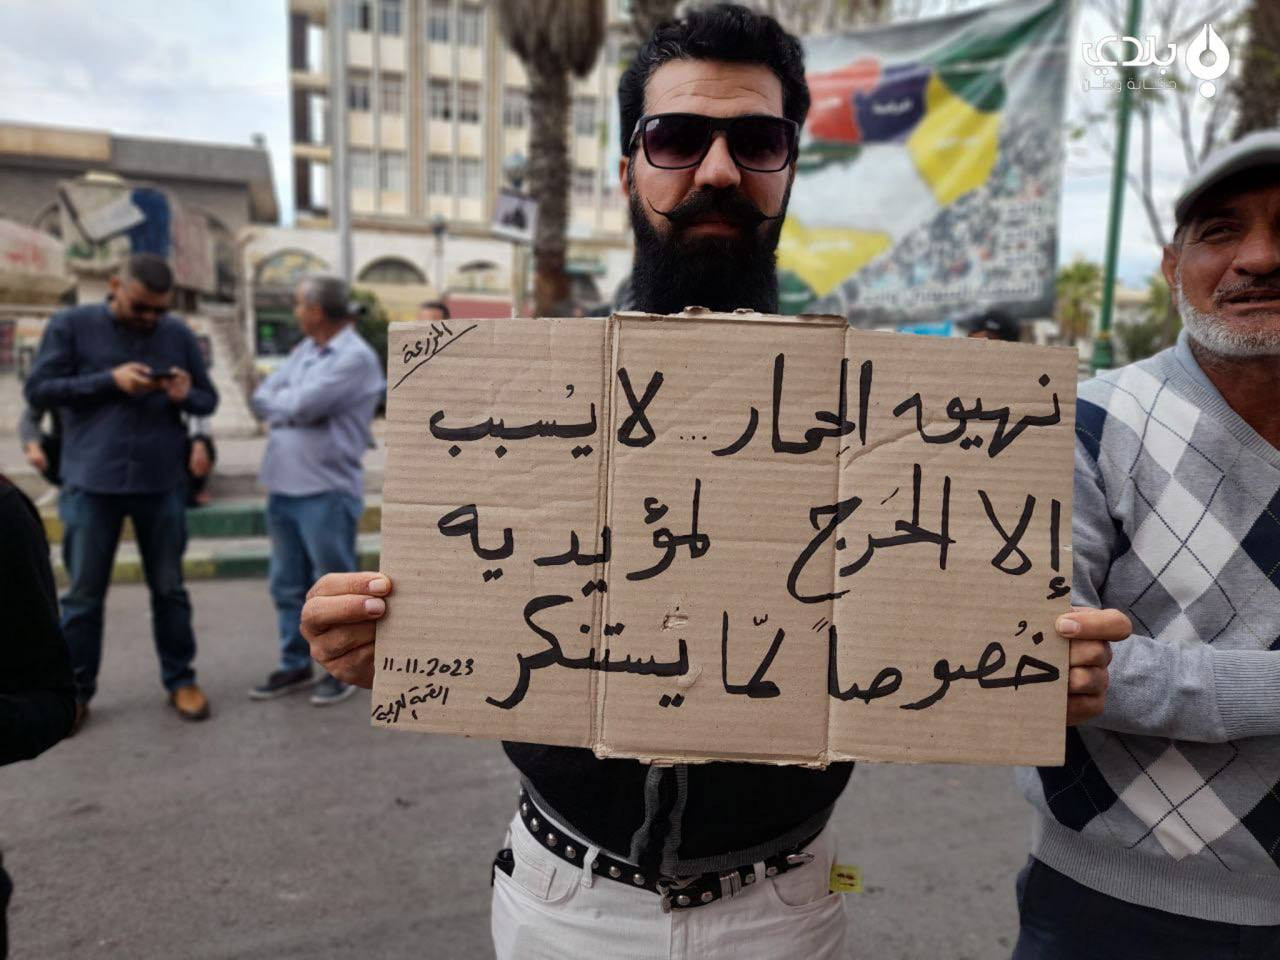 بلدي
المزرعة
نهيق الحِمار... لا يُسبب
إلا الحَرَج لمؤيديه
خُصوصاً لمّا يَستنكر
11.11.2023
القمة العربية